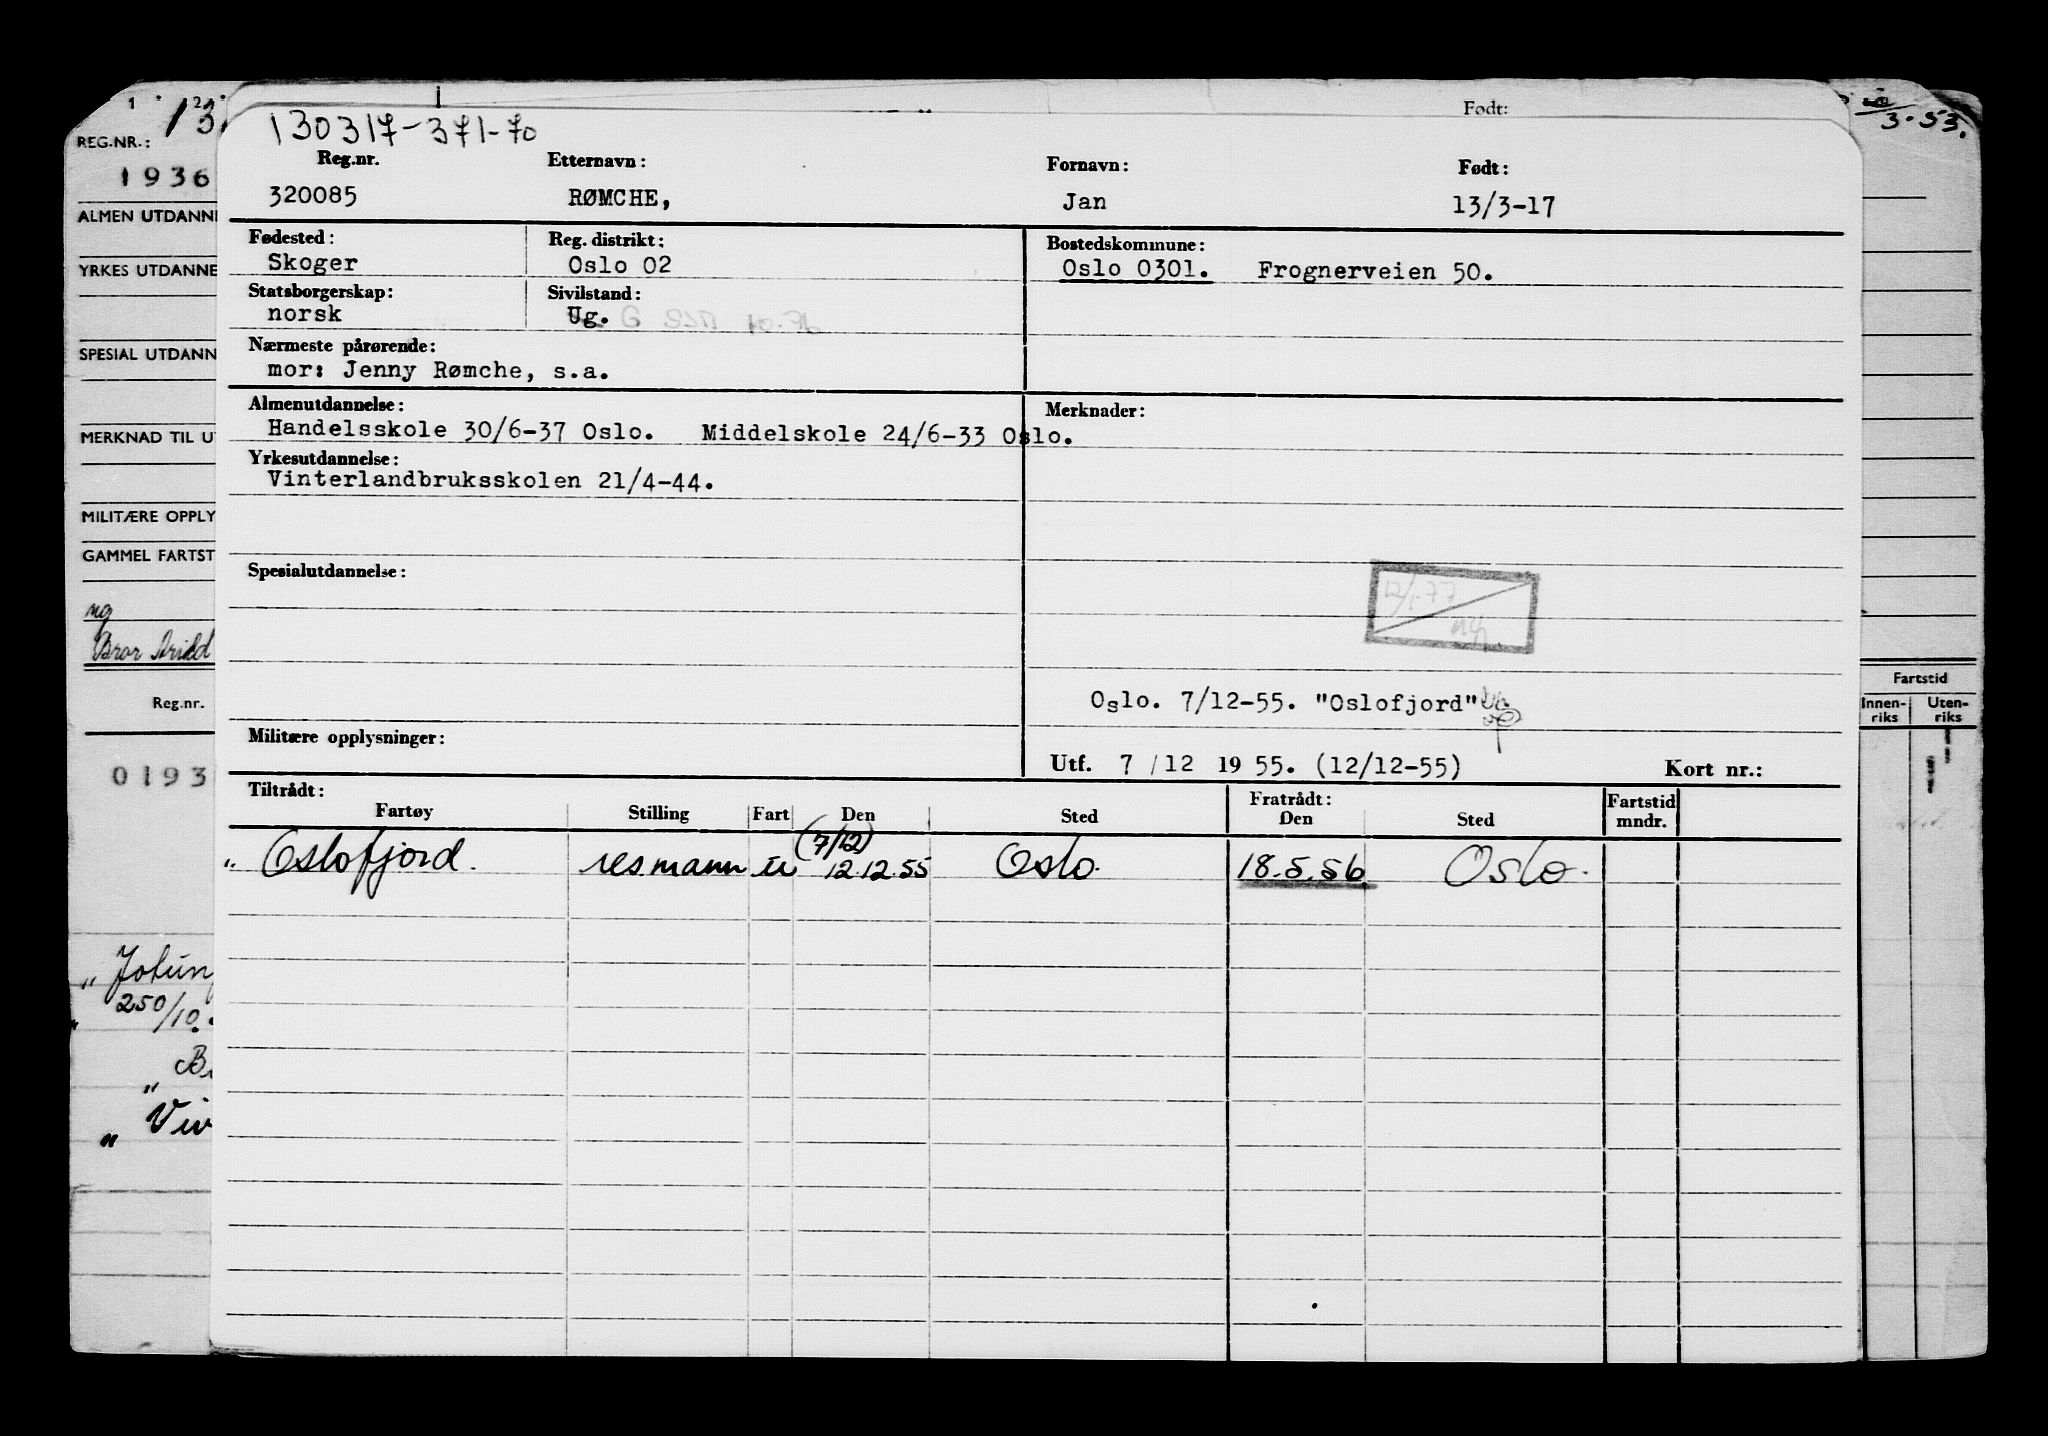 1 2
13
REG.NR.:
1936
ALMEN UTDANNE
YRKES UTDANNE
SPESIAL UTDANN
MERKNAD TIL U
MILITÆRE OPPLY
GAMMEL FARTST
ng
Bror Arild
Reg.nr.
0193
" Jotun
250/10.
" B
" Viv
Født:
3.53.
130317-371-70
Reg.nr. Etternavn: Fornavn: Født:
320085 RØMCHE, Jan 13/3-17
Fødested: Reg. distrikt: Bostedskommune:
Skoger Oslo 02 Oslo 0301. Frognerveien 50.
Statsborgerskap: Sivilstand:
norsk Ug. G
Nærmeste pårørende:
mor: Jenny Rømche, s.a.
Almenutdannelse: Merknader:
Handelsskole 30/6-37 Oslo. Middelskole 24/6-33 Oslo.
Yrkesutdannelse:
Vinterlandbruksskolen 21/4-44.
Spesialutdannelse:
12/1-77
Oslo. 7/12-55. "Oslofjord"
Militære opplysninger:
Utf. 7/12 1955. (12/12-55) Kort nr.:
Tiltrådt: Fratrådt: Fartstid
Fartøy Stilling Fart Den Sted Den Sted mndr.
(7/12)
" Oslofjord. resmann u 12.12.55 Oslo. 18.5.56 Oslo.
Fartstid
Innen-riks Uten-riks